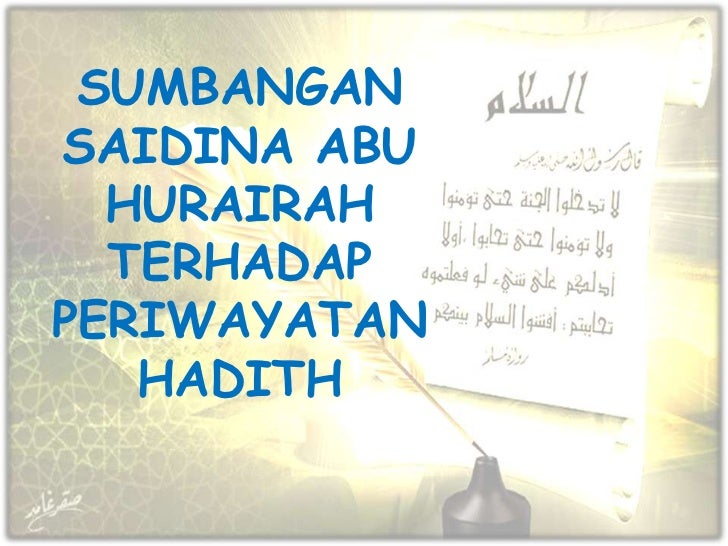 SUMBANGAN
SAIDINA ABU
HURAIRAH
TERHADAP
PERIWAYATAN
HADITH
السلام
قال رسول الله صلى الله عليه وسلم
لا تدخلوا الجنة حتى تؤمنوا
ولا تؤمنوا حتى تحابوا ، أولا
أدلكم على شيء لو فعلتموه
تحاببتم : أفشوا السلام بينكم
رواه مسلم